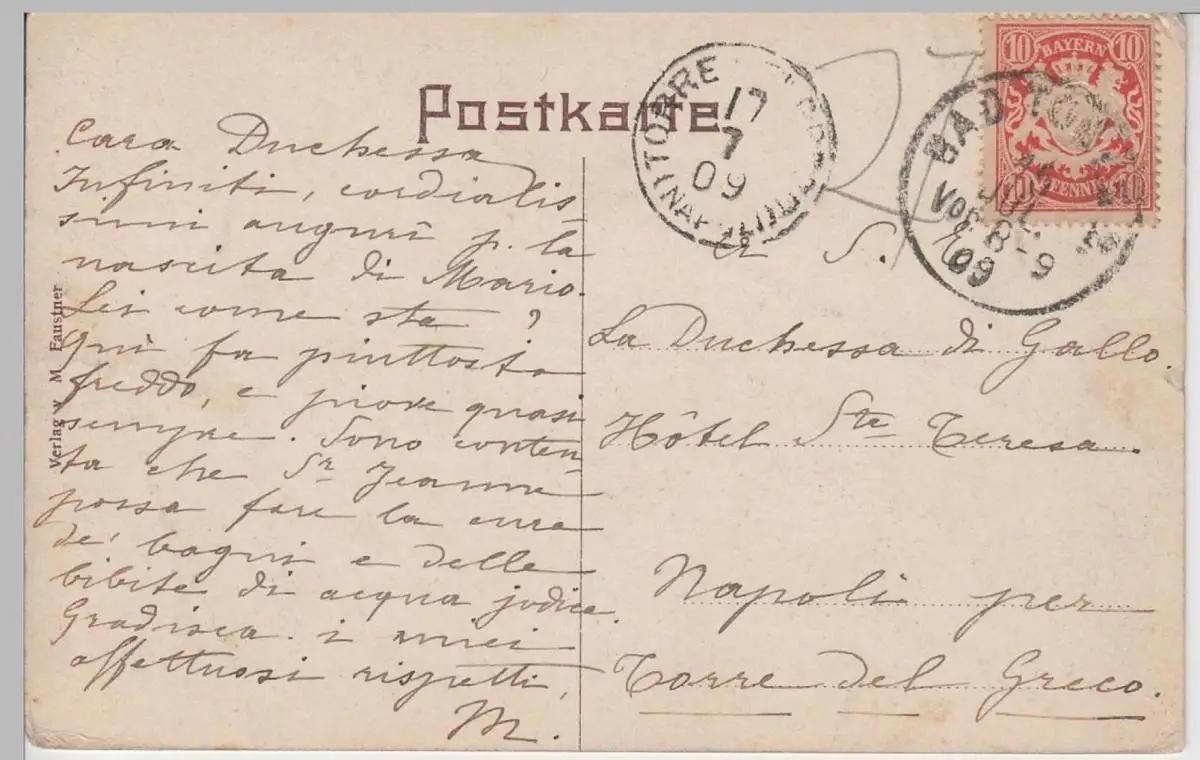 Postkarte
Cara Duchessa
Infiniti, cordialis-
simi auguri p. la
nascita di Mario.
Lei come sta?
Quì fa piuttosto
freddo, e piove quasi
sempre. Sono conten-
ta che Sr Jeanne
possa fare la cura
de' bagni e delle
bibite di acqua jodica.
Gradisca i miei
affettuosi rispetti,
M.
Verlag v. M. Faustner
TORRE
17
7
09
(NAPOLI)
10 BAYERN 10
10 PFENNIG 10
BAD
JUL
Vor 8-9
09
a S. E.
La Duchessa di Gallo.
Hôtel Ste Teresa.
Napoli per
Torre del Greco.